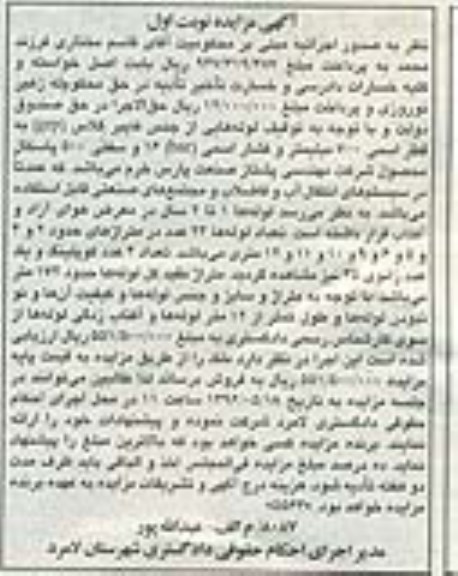 آگهی مزایده نوبت اول
نظر به صدور اجرائیه مبنی بر محکومیت آقای قاسم مختاری فرزند
محمد به پرداخت مبلغ ریال بابت اصل خواسته و
کلیه خسارات دادرسی و خسارت تأخیر تأدیه در حق محکوم‌له
نوروزی و پرداخت مبلغ ریال حق‌الاجرا در حق صندوق
دولت و با توجه به توقیف لوله‌هایی از جنس فایبر گلاس (grp) به
قطر اسمی ۳۰۰ میلیمتر و فشار اسمی و سفتی ۵۰۰ پاسکال
محصول شرکت مهندسی پشتاز صنعت پارس خرم می‌باشد که عمدتا
در سیستم‌های انتقال آب و فاضلاب و مجتمع‌های صنعتی قابل استفاده
می‌باشد. به نظر می‌رسد لوله‌ها ۱ تا ۲ سال در معرض هوای آزاد و
آفتاب قرار داشته است. تعداد لوله‌ها ۲۳ عدد در متراژهای حدود
و ۱۰ و ۱۱ و ۱۲ متری می‌باشد. تعداد عدد کوپلینگ و یک
عدد زانوی نیز مشاهده گردید. متراژ مفید کل لوله‌ها حدود متر
می‌باشد. لذا توجه به متراژ و سایز و جنس لوله‌ها و کیفیت آن‌ها و نو
نبودن لوله‌ها و طول کمتر از ۱۲ متر لوله‌ها و آفتاب زدگی لوله‌ها از
سوی کارشناس رسمی دادگستری به مبلغ ۵۵۱/۵۰۰/۰۰۰ ریال ارزیابی
شده است این اجرا در نظر دارد ملک را از طریق مزایده به قیمت پایه
مزایده ۵۵۱/۵۰۰/۰۰۰ ریال به فروش برساند لذا طالبین می‌توانند در
جلسه مزایده به تاریخ ساعت ۱۱ در محل اجرای احکام
حقوقی دادگستری لامرد شرکت نموده و پیشنهادات خود را ارائه
نمایند. برنده مزایده کسی خواهد بود که بالاترین مبلغ را پیشنهاد
نماید. ده درصد مبلغ مزایده فی‌المجلس اخذ و الباقی باید ظرف مدت
دو هفته تأدیه شود. هزینه درج آگهی و تشریفات مزایده به عهده برنده
مزایده خواهد بود.
۸۰۸۷/م الف- عبدالله پور
مدیر اجرای احکام حقوقی دادگستری شهرستان لامرد